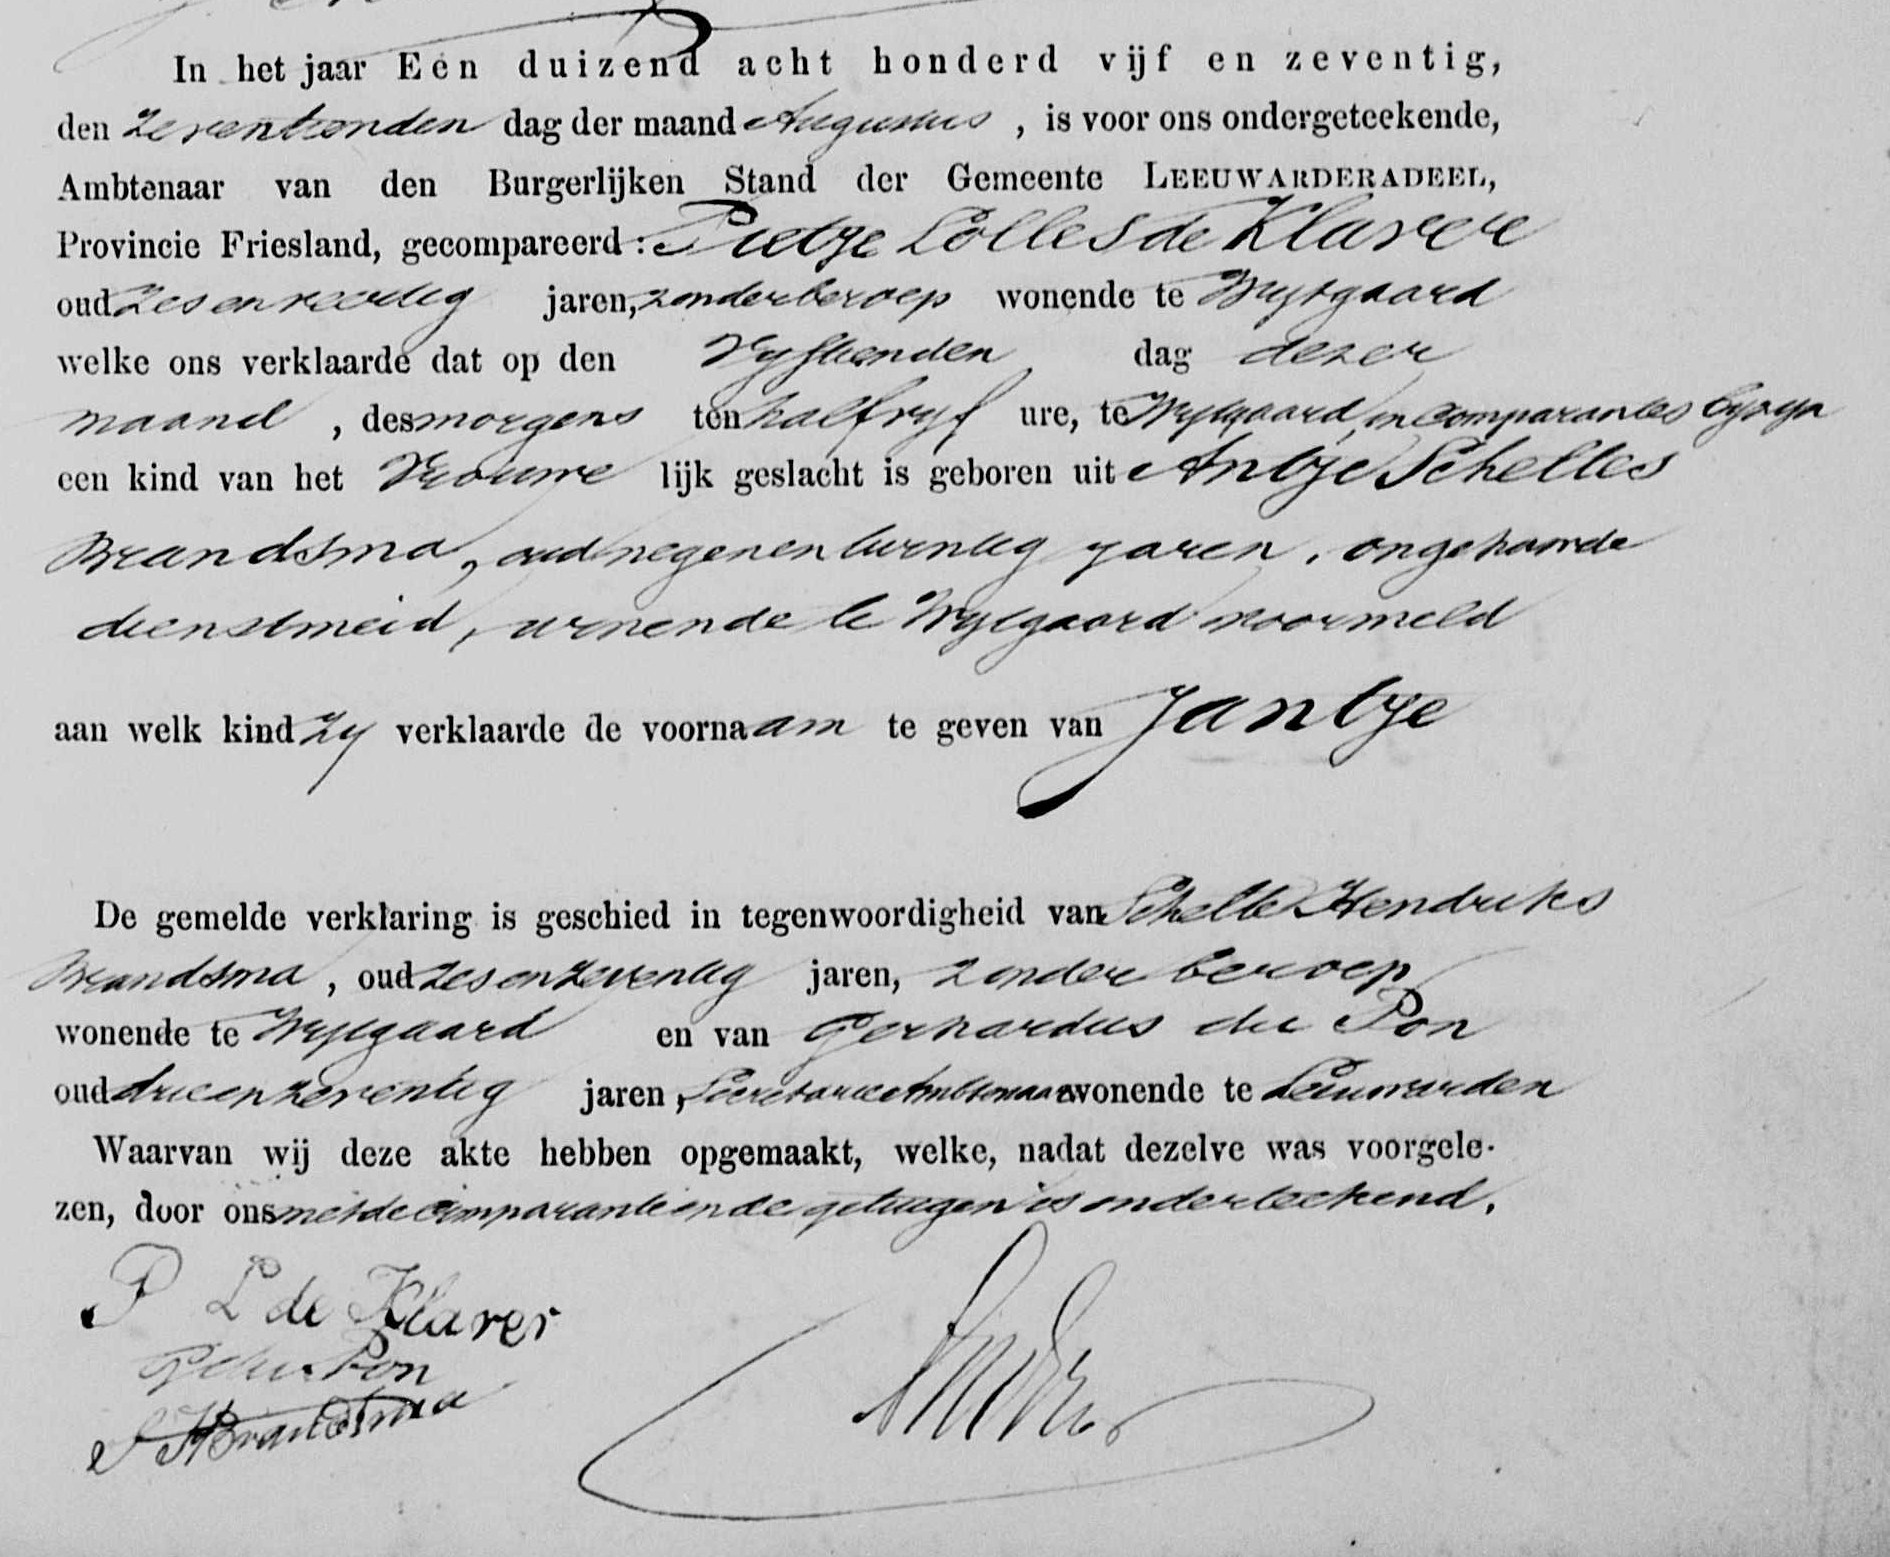 In het jaar Een duizend acht honderd vijf en zeventig,
den zeventienden dag der maand Augustus, is voor ons ondergeteekende,
Ambtenaar van den Burgerlijken Stand der Gemeente LEEUWARDERADEEL,
Provincie Friesland, gecompareerd: Pietje Lolles de Klaver
oud zes en veertig jaren, zonder beroep wonende te Wytgaard
welke ons verklaarde dat op den Vyftienden dag dezer
maand, des morgens ten half vyf ure, te Wytgaard, in comparantes byzyn
een kind van het Vrouwe lijk geslacht is geboren uit Antje Scheltes
Brandsma, oud negenentwintig jaren, ongehuwde
dienstmeid, wonende te Wytgaard voormeld
aan welk kind zy verklaarde de voornaam te geven van Jantje
De gemelde verklaring is geschied in tegenwoordigheid van Schelte Hendriks
Brandsma, oud zes en zeventig jaren, zonder beroep
wonende te Wytgaard en van Gerhardus du Pon
oud drie en zeventig jaren, Secretarie Ambtenaar wonende te Leeuwarden
Waarvan wij deze akte hebben opgemaakt, welke, nadat dezelve was voorgele-
zen, door ons met de comparante en de getuigen is onderteekend.
P L de Klaver
G du Pon
S H Brandsma